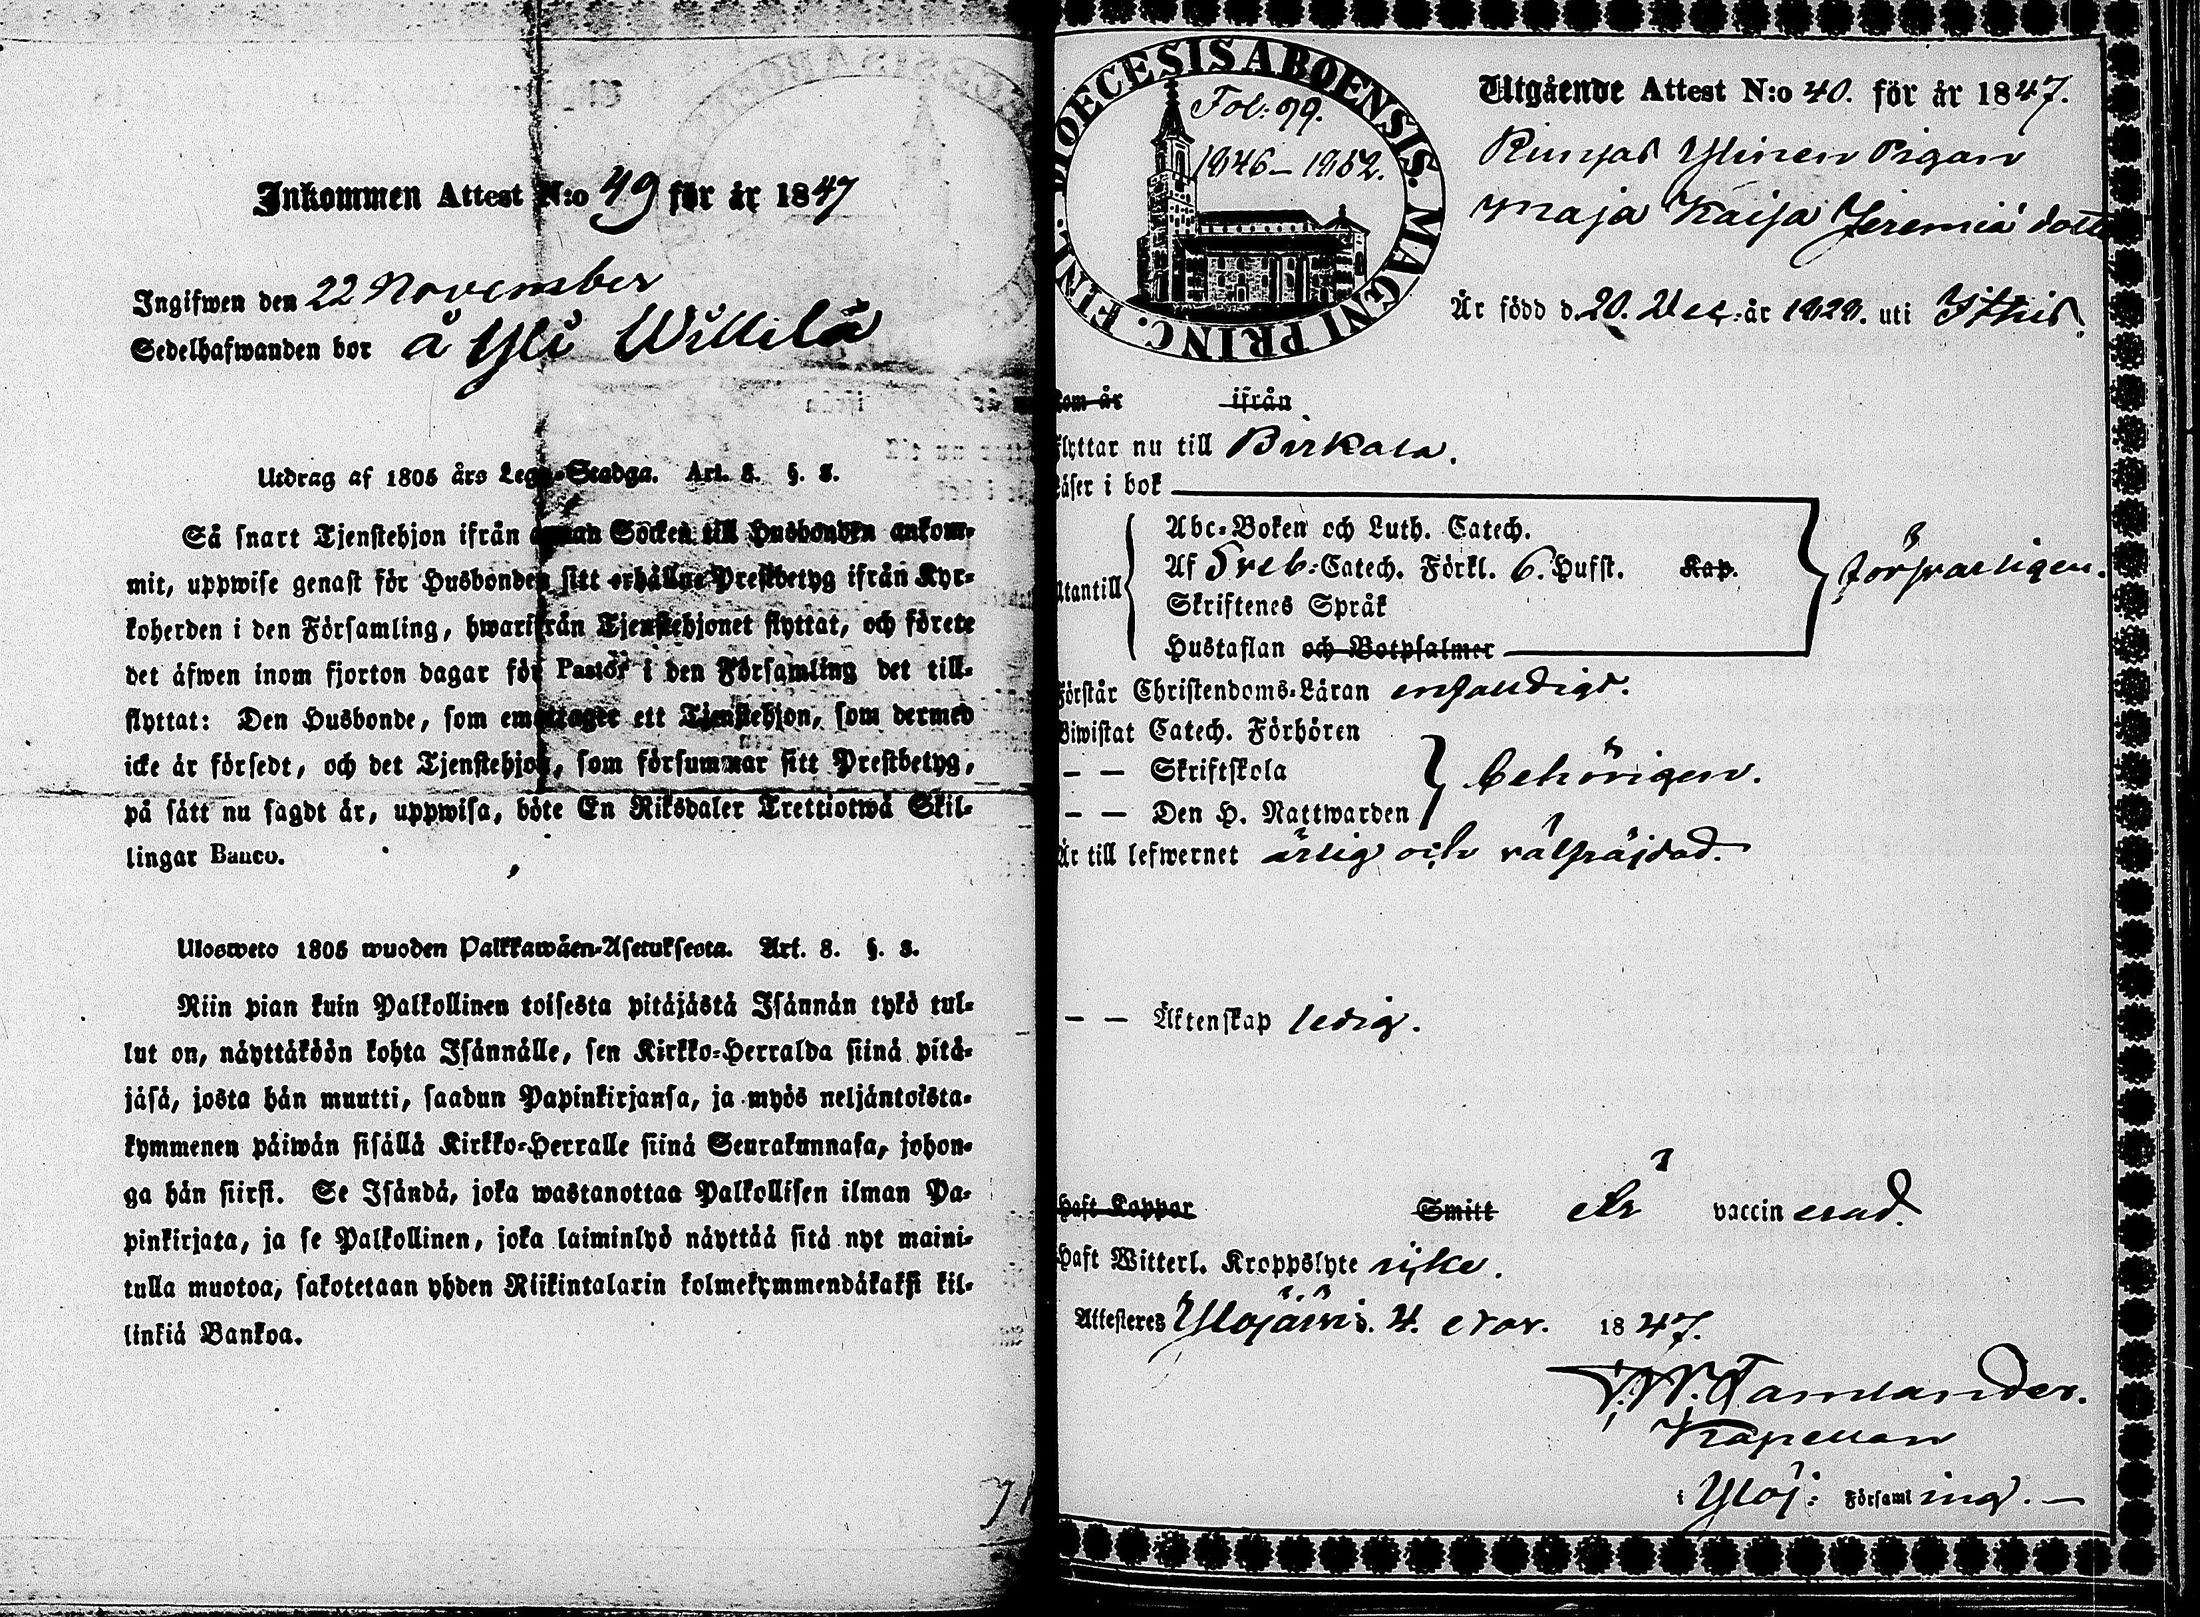 Inkommen Attest N:o 49 för år 1847
Ingifwen den 22 November
Sedelhafwanden bor å Yli Willilä
Utdrag af 1805 års Lego-Stadga. Art. 8. §. 8.
Så snart Tjenstehjon ifrån annan Socken till Husbonden ankom-
mit, uppwise genast för Husbonden sitt erhållne Prestbetyg ifrån Kyr-
koherden i den Församling, hwarifrån Tjenstehjonet flyttat, och förete
det äfwen inom fjorton dagar för Pastor i den Församling det till-
flyttat: Den Husbonde, som emottager ett Tjenstehjon, som dermed
icke är försedt, och det Tjenstehjon, som försummar sitt Prestbetyg,
på sätt nu sagdt är, uppwisa, böte En Riksdaler Trettiotwå Skil-
lingar Banco.
Ulosweto 1805 wuoden Palkkawäen-Asetuksesta. Art. 8. §. 8.
Niin pian kuin Palkollinen toisesta pitäjästä Isännän tykö tul-
lut on, näyttäköön kohta Isännälle, sen Kirkko-Herralda siinä pitä-
jäsä, josta hän muutti, saadun Papinkirjansa, ja myös neljäntoista-
kymmenen päiwän sisällä Kirkko-Herralle siinä Seurakunnasa, johon-
ga hän siirsi. Se Isändä, joka wastanottaa Palkollisen ilman Pa-
pinkirjata, ja se Palkollinen, joka laiminlyö näyttää sitä nyt maini-
tulla muotoa, sakotetaan yhden Riikintalarin kolmekymmendäkaksi kil-
linkiä Bankoa.
DIOECESIS ABOENSIS. MAGNI PRINC. FINL.
Fol: 99.
1846–1852.
Utgående Attest N:o 40. för år 1847.
Ylinen Pigan
Maja Kaisa Jeremiä dott
Är född d. 20. Dec: år 1829. uti
kom år ifrån
flyttar nu till Birkala.
Läser i bok
Utantill
Abc-Boken och Luth. Catech.
Af Sveb: Catech. Förkl. 6. Hufst. Kap.
Skriftenes Språk
Hustaflan och Botpsalmer
försvarligen.
Förstår Christendoms-Läran enfaldigt.
Biwistat Catech. Förhören
– – Skriftskola
– – Den H. Nattwarden
behörigen.
Är till lefwernet ärlig och välfräjdad.
– – Äktenskap ledig.
Haft Koppor Smitt är vaccinerad.
Haft Witterl. Kroppslyte icke.
Attesteres Ylöjärvi d. 4. Nov. 1847.
Tamlander.
Kapellan
i Ylöj: Församling. –